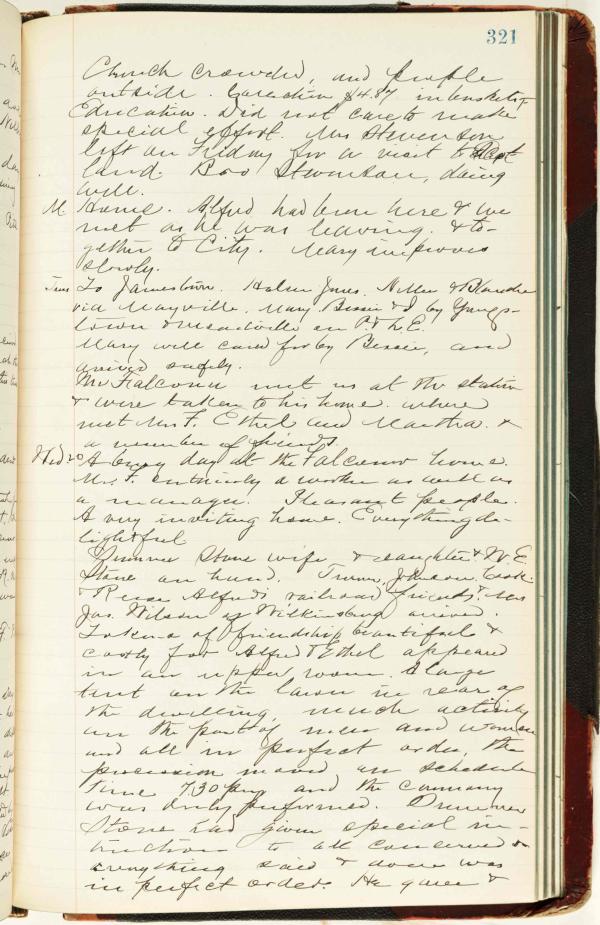 321
Church crowded, and people
outside. Collection $4.87 in baskets,
Education. Did not care to make
special effort. Mrs Stevenson
left on Friday for a visit to
land. Bro Stevenson, doing
well.
M. Home. Alfred had been here & we
met as he was leaving. & to-
gether to City. Mary improves
slowly.
Tues To Jamestown. Nellie & Blanche
via Mayville. Mary, Bessie & I by Youngs-
town & Meadville on P. & L. E.
Mary well cared for by Bessie, and
arived safely.
Mr Falconer met us at the station
& were taken to his home. where
met Mrs F. Ethel and Martha. &
a number of friends.
Wed 20 A busy day at the Falconer home.
Mrs F. entirely a worker as well as
a manager. Pleasant people.
A very inviting home. Everything de-
lightful
Stone wife & daughter & W. E.
Stone on hand. Johnson. Cook.
& Reese Alfred's railroad friends. Mrs
Jas. Wilson of Wilkinsburg arived.
Tokens of friendship beautiful &
costly for Alfred & Ethel appeared
in an upper room. A large
tent on the lawn in rear of
the dwelling, much activity
on the part of men and women
and all in perfect order, the
procession moved on schedule
time 7.30 pm and the ceremony
was duly performed.
Stone had given special in-
truction to all concerned &
everything said & done was
in perfect order. He gave &